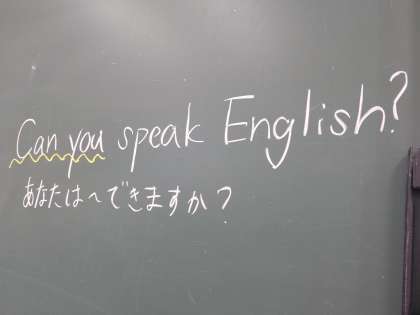 Can you speak English?
あなたは〜できますか？